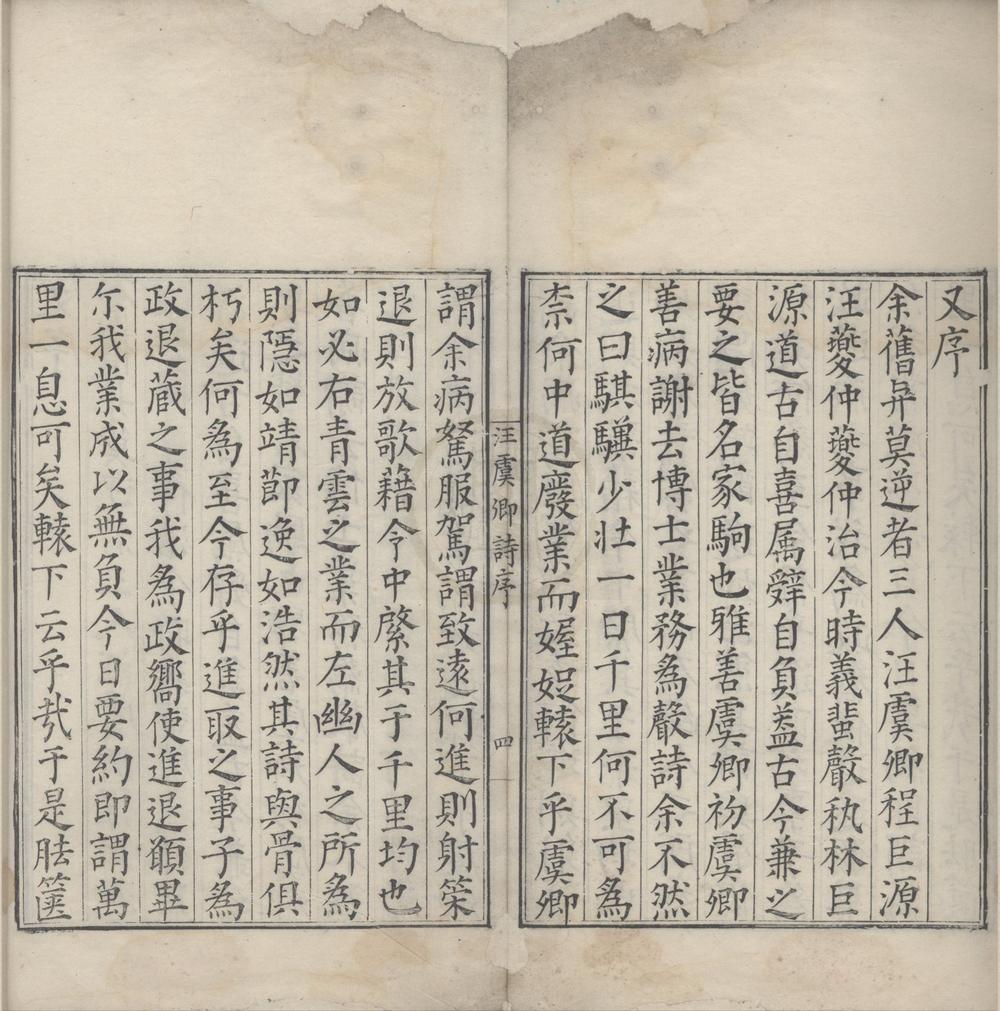 又序
余舊与莫逆者三人汪虞卿程巨源
汪夔仲夔仲治今時義蜚聲秇林巨
源道古自喜属辭自負葢古今兼之
要之皆名家駒也雅善虞卿初虞卿
善病謝去博士業務為聲詩余不然
之曰騏驥少壯一日千里何不可為
柰何中道廢業而娖娖轅下乎虞卿
汪虞卿詩序
四
謂余病駑服駕謂致遠何進則射策
退則放歌藉令中綮其于千里均也
如必右青雲之業而左幽人之所為
則隱如靖節逸如浩然其詩與骨俱
朽矣何為至今存乎進取之事子為
政退藏之事我為政嚮使進退顓畢
尓我業成以無負今日要約即謂萬
里一息可矣轅下云乎㦲于是胠篋